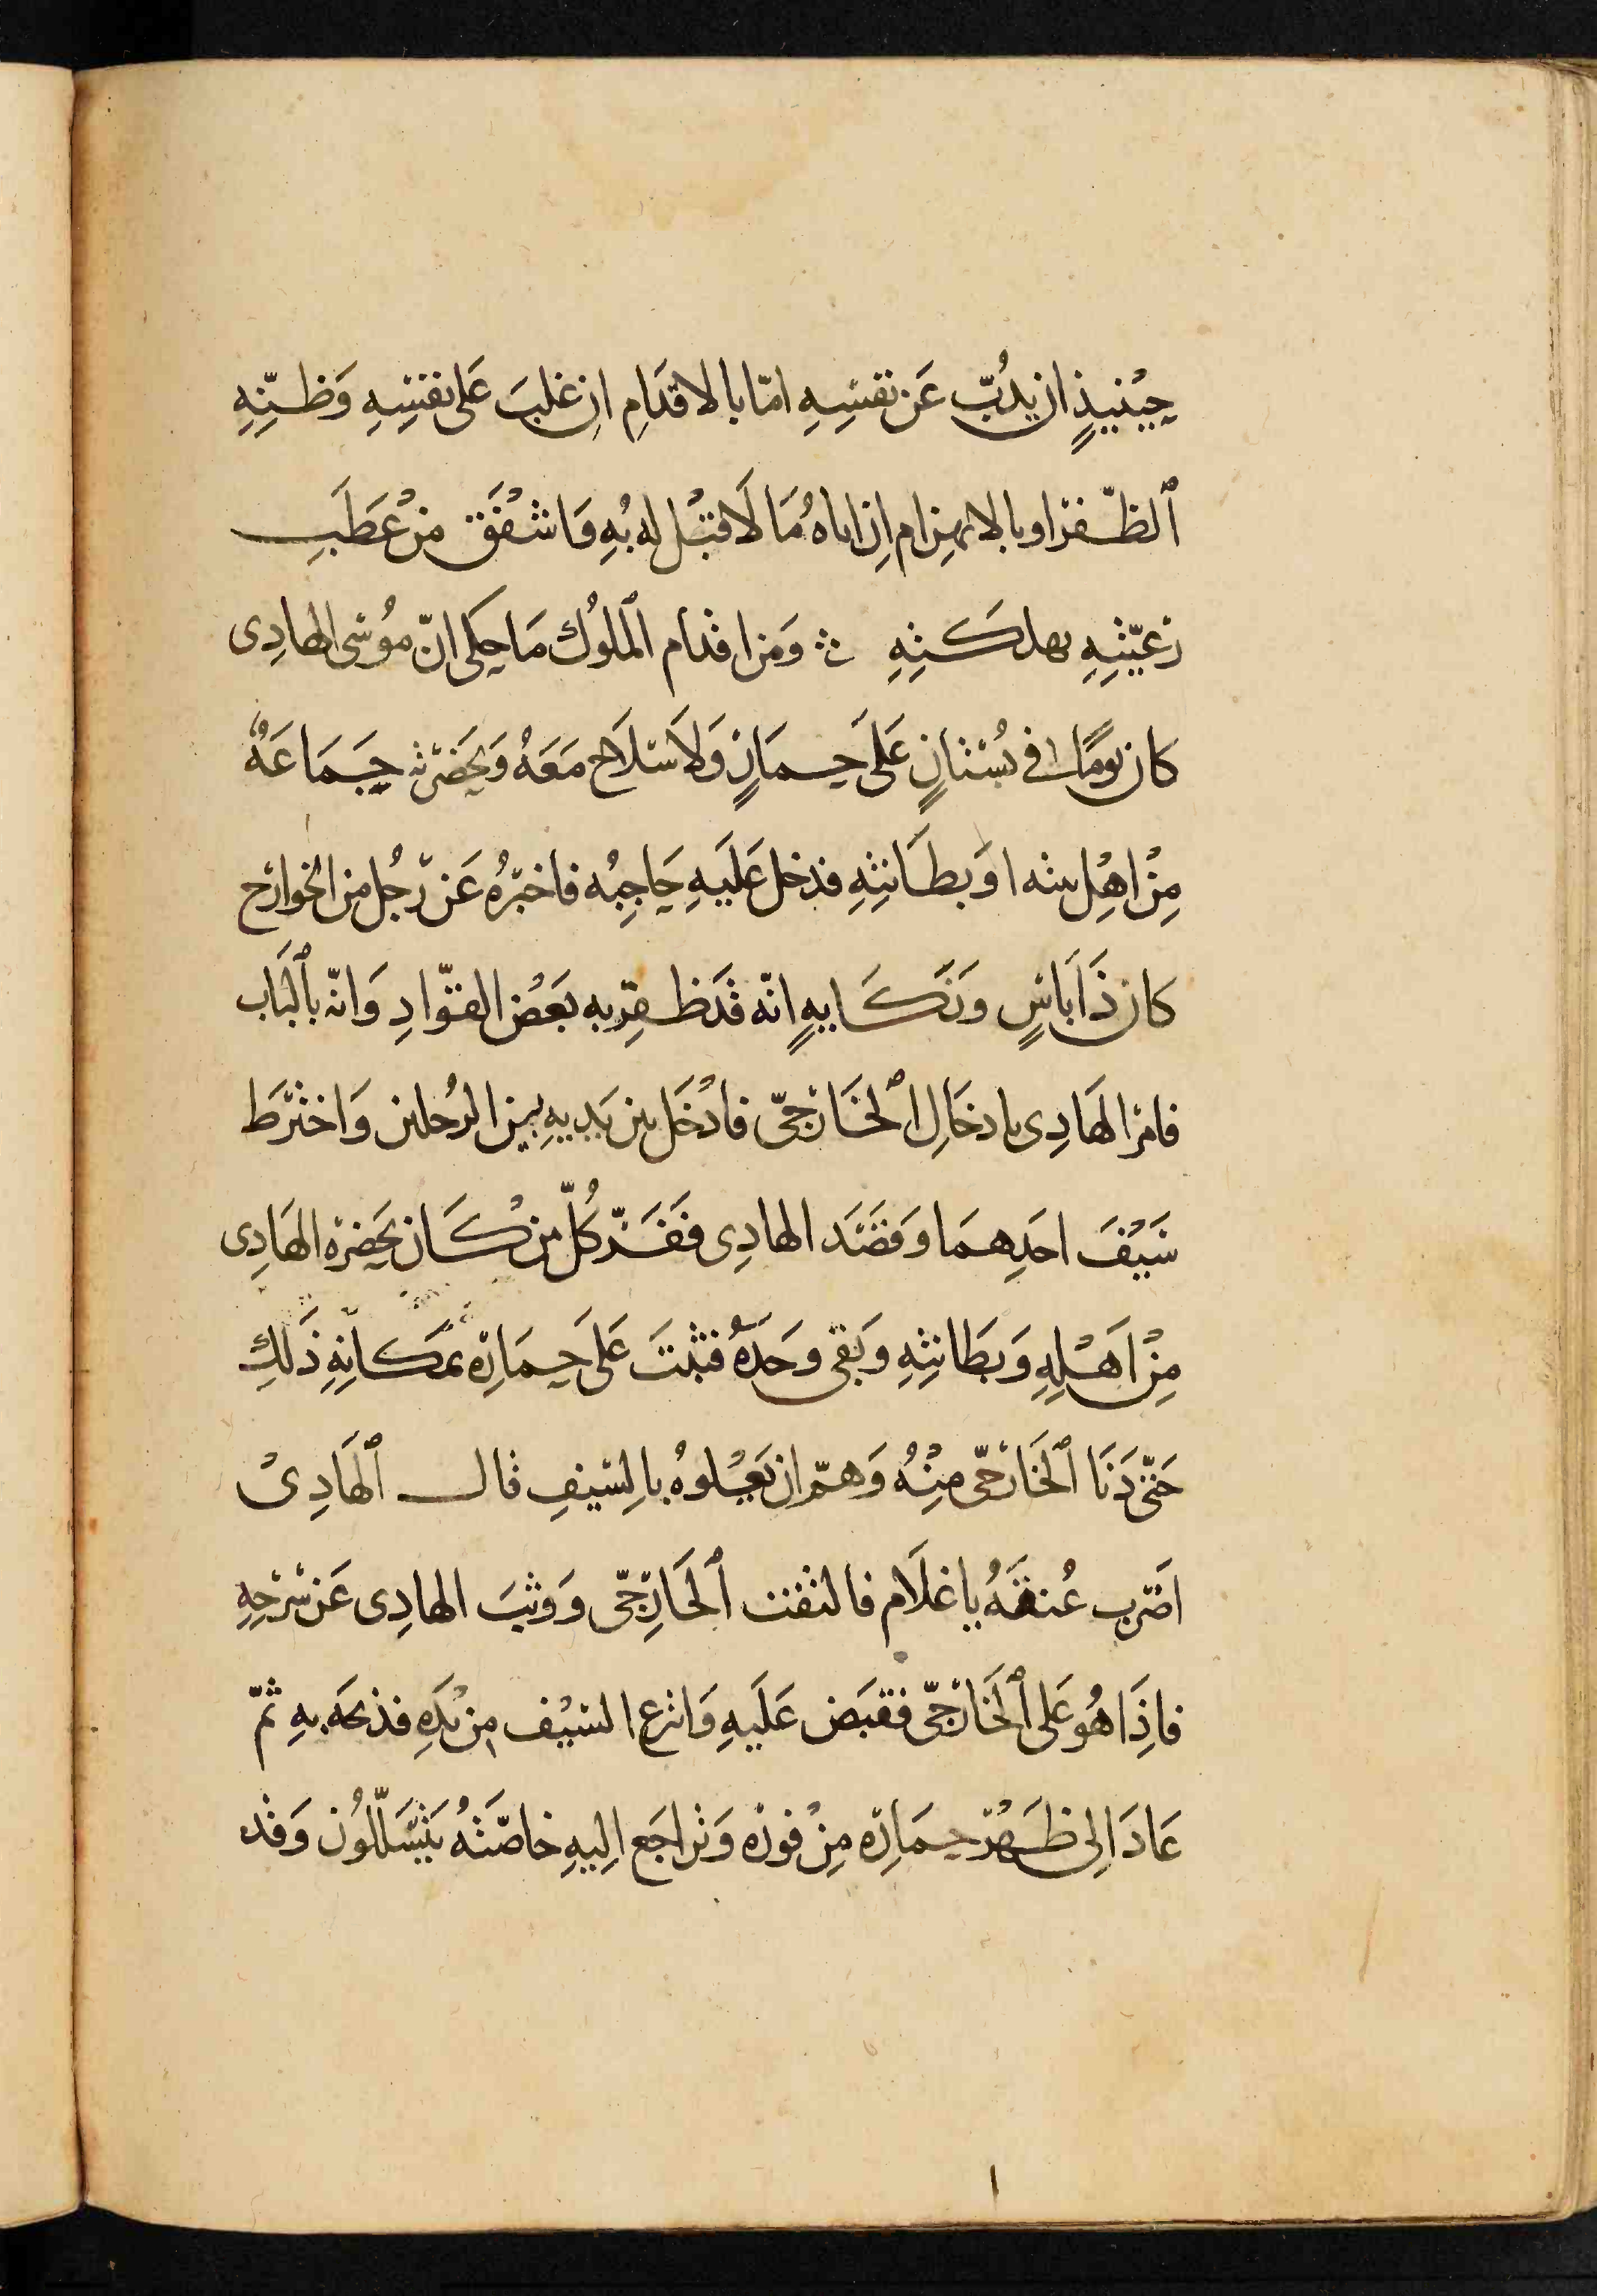 حِيْنَيِذٍ ان يذُبّ عَن نفسِهِ امّا بالاقدَامِ اِن غلبَ عَلى نفسِهِ وَظنِّهِ
ٱلظّفر او بالانهزام اِن اتاهُ مَا لَا قبْل له بُهِ وَاشْفَقَ مِنْ عَطَبِ
رَعيّتِهِ بهلكتِهِ ۞ وَمن اقدام الملُوك مَا حكِى انّ مُوسَى الهادِى
كان يَومًا فى بُسْتانٍ عَلَى حِمَارٍ وَلَا سَلَاح مَعَهُ وَبحَضرته جَمَاعَةٌ
مِنْ اهْلِ بيته اوَ بطَانتِهِ فدخل عَلَيهِ حَاجِبُه فاخبَرهُ عَن رَجُل من الخوارج
كان ذَا بَاسٍ وَنكَايةٍ انّه قَد ظفِر به بَعْض القوّادِ وَانّه بالبَاب
فامَر الهَادِى بادخَالِ ٱلخَارجىّ فادُخَل بين يَديهِ بين الرجُلين وَاخترَط
سَيْفَ احَدِهمَا وَقصَد الهادِى ففَرّ كُلّ من كَان بحَضرة الهَادِى
مِنْ اَهْلِهِ وَبَطانتِهِ وَبَقى وحَدَهُ فثبتَ عَلَى حِمَارِه بمَكانِهِ ذَلِكِ
حَتّى دَنَا ٱلخَارجىّ مِنْهُ وَهمّ ان يَعْلوهُ بالِسّيفِ قال ٱلهَادِىْ
اضرب عُنقَهُ يا غلَام فالتفت ٱلخَارِجىّ وَوثبَ الهادِى عَن سَرجهِ
فاِذَا هُو عَلى ٱلخَارجىّ فقبَض عَلَيهِ وَانتزع السّيْف مِنْ يَدِهِ فذبحَه بهِ ثمّ
عَادَ اِلى ظَهْر حِمَارِه مِنْ فوره وَتراجَع اِليهِ خاصّتُهُ يتَسَلّلوُن وَقد